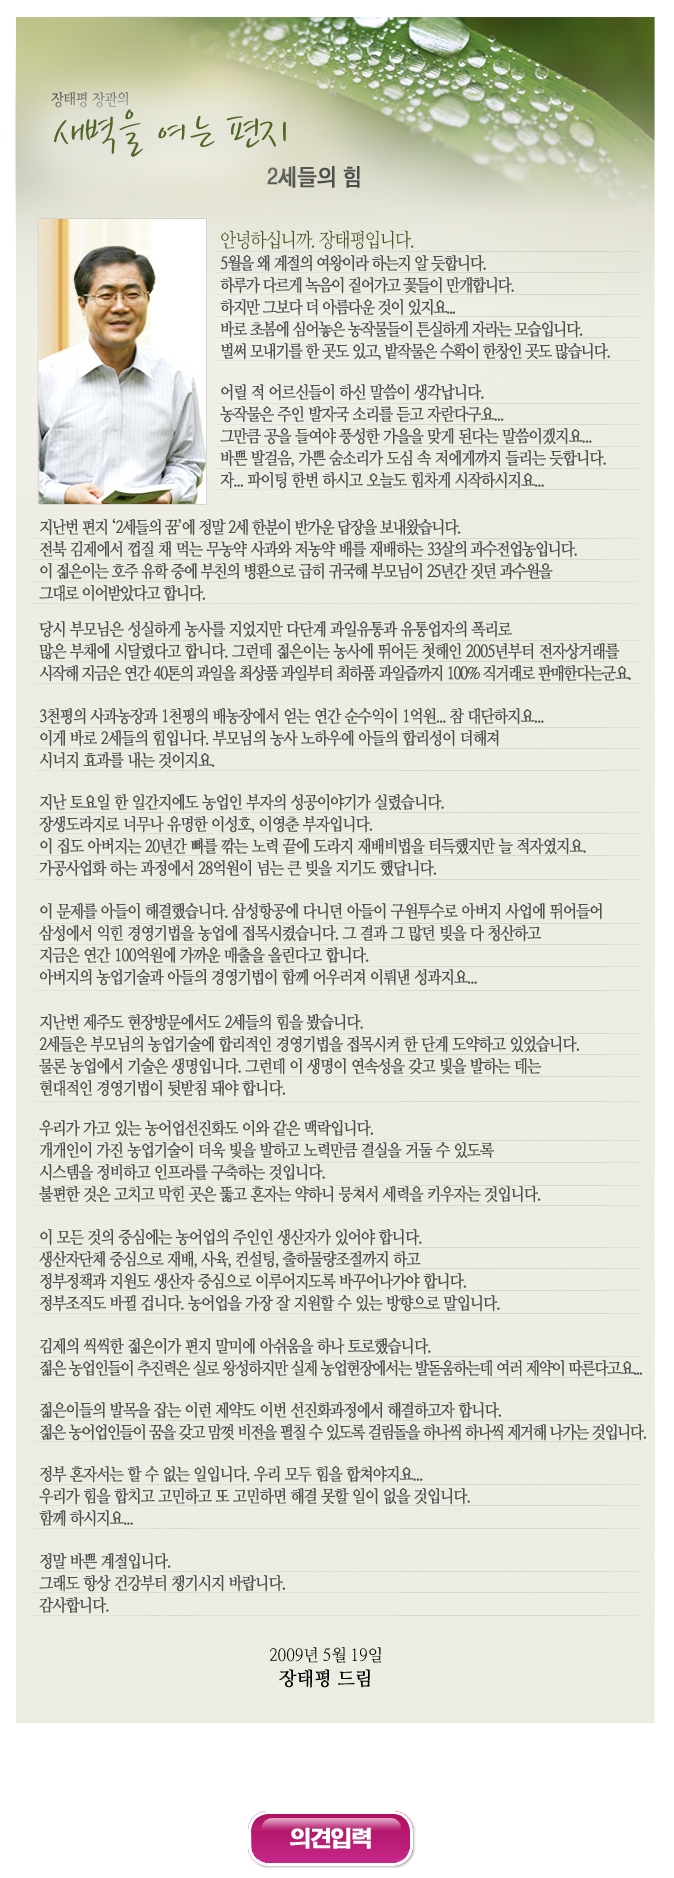 장태평 장관의
새벽을 여는 편지
2세들의 힘
안녕하십니까. 장태평입니다.
5월을 왜 계절의 여왕이라 하는지 알 듯합니다.
하루가 다르게 녹음이 짙어가고 꽃들이 만개합니다.
하지만 그보다 더 아름다운 것이 있지요...
바로 초봄에 심어놓은 농작물들이 튼실하게 자라는 모습입니다.
벌써 모내기를 한 곳도 있고, 밭작물은 수확이 한창인 곳도 많습니다.
어릴 적 어르신들이 하신 말씀이 생각납니다.
농작물은 주인 발자국 소리를 듣고 자란다구요...
그만큼 공을 들여야 풍성한 가을을 맞게 된다는 말씀이겠지요...
바쁜 발걸음, 가쁜 숨소리가 도심 속 저에게까지 들리는 듯합니다.
자... 파이팅 한번 하시고 오늘도 힘차게 시작하시지요...
지난번 편지 ‘2세들의 꿈’에 정말 2세 한분이 반가운 답장을 보내왔습니다.
전북 김제에서 껍질 채 먹는 무농약 사과와 저농약 배를 재배하는 33살의 과수전업농입니다.
이 젊은이는 호주 유학 중에 부친의 병환으로 급히 귀국해 부모님이 25년간 짓던 과수원을
그대로 이어받았다고 합니다.
당시 부모님은 성실하게 농사를 지었지만 다단계 과일유통과 유통업자의 폭리로
많은 부채에 시달렸다고 합니다. 그런데 젊은이는 농사에 뛰어든 첫해인 2005년부터 전자상거래를
시작해 지금은 연간 40톤의 과일을 최상품 과일부터 최하품 과일즙까지 100% 직거래로 판매한다는군요.
3천평의 사과농장과 1천평의 배농장에서 얻는 연간 순수익이 1억원... 참 대단하지요...
이게 바로 2세들의 힘입니다. 부모님의 농사 노하우에 아들의 합리성이 더해져
시너지 효과를 내는 것이지요.
지난 토요일 한 일간지에도 농업인 부자의 성공이야기가 실렸습니다.
장생도라지로 너무나 유명한 이성호, 이영춘 부자입니다.
이 집도 아버지는 20년간 뼈를 깎는 노력 끝에 도라지 재배비법을 터득했지만 늘 적자였지요.
가공사업화 하는 과정에서 28억원이 넘는 큰 빚을 지기도 했답니다.
이 문제를 아들이 해결했습니다. 삼성항공에 다니던 아들이 구원투수로 아버지 사업에 뛰어들어
삼성에서 익힌 경영기법을 농업에 접목시켰습니다. 그 결과 그 많던 빚을 다 청산하고
지금은 연간 100억원에 가까운 매출을 올린다고 합니다.
아버지의 농업기술과 아들의 경영기법이 함께 어우러져 이뤄낸 성과지요...
지난번 제주도 현장방문에서도 2세들의 힘을 봤습니다.
2세들은 부모님의 농업기술에 합리적인 경영기법을 접목시켜 한 단계 도약하고 있었습니다.
물론 농업에서 기술은 생명입니다. 그런데 이 생명이 연속성을 갖고 빛을 발하는 데는
현대적인 경영기법이 뒷받침 돼야 합니다.
우리가 가고 있는 농어업선진화도 이와 같은 맥락입니다.
개개인이 가진 농업기술이 더욱 빛을 발하고 노력만큼 결실을 거둘 수 있도록
시스템을 정비하고 인프라를 구축하는 것입니다.
불편한 것은 고치고 막힌 곳은 뚫고 혼자는 약하니 뭉쳐서 세력을 키우자는 것입니다.
이 모든 것의 중심에는 농어업의 주인인 생산자가 있어야 합니다.
생산자단체 중심으로 재배, 사육, 컨설팅, 출하물량조절까지 하고
정부정책과 지원도 생산자 중심으로 이루어지도록 바꾸어나가야 합니다.
정부조직도 바뀔 겁니다. 농어업을 가장 잘 지원할 수 있는 방향으로 말입니다.
김제의 씩씩한 젊은이가 편지 말미에 아쉬움을 하나 토로했습니다.
젊은 농업인들이 추진력은 실로 왕성하지만 실제 농업현장에서는 발돋움하는데 여러 제약이 따른다고요...
젊은이들의 발목을 잡는 이런 제약도 이번 선진화과정에서 해결하고자 합니다.
젊은 농어업인들이 꿈을 갖고 맘껏 비전을 펼칠 수 있도록 걸림돌을 하나씩 하나씩 제거해 나가는 것입니다.
정부 혼자서는 할 수 없는 일입니다. 우리 모두 힘을 합쳐야지요...
우리가 힘을 합치고 고민하고 또 고민하면 해결 못할 일이 없을 것입니다.
함께 하시지요...
정말 바쁜 계절입니다.
그래도 항상 건강부터 챙기시지 바랍니다.
감사합니다.
2009년 5월 19일
장태평 드림
의견입력